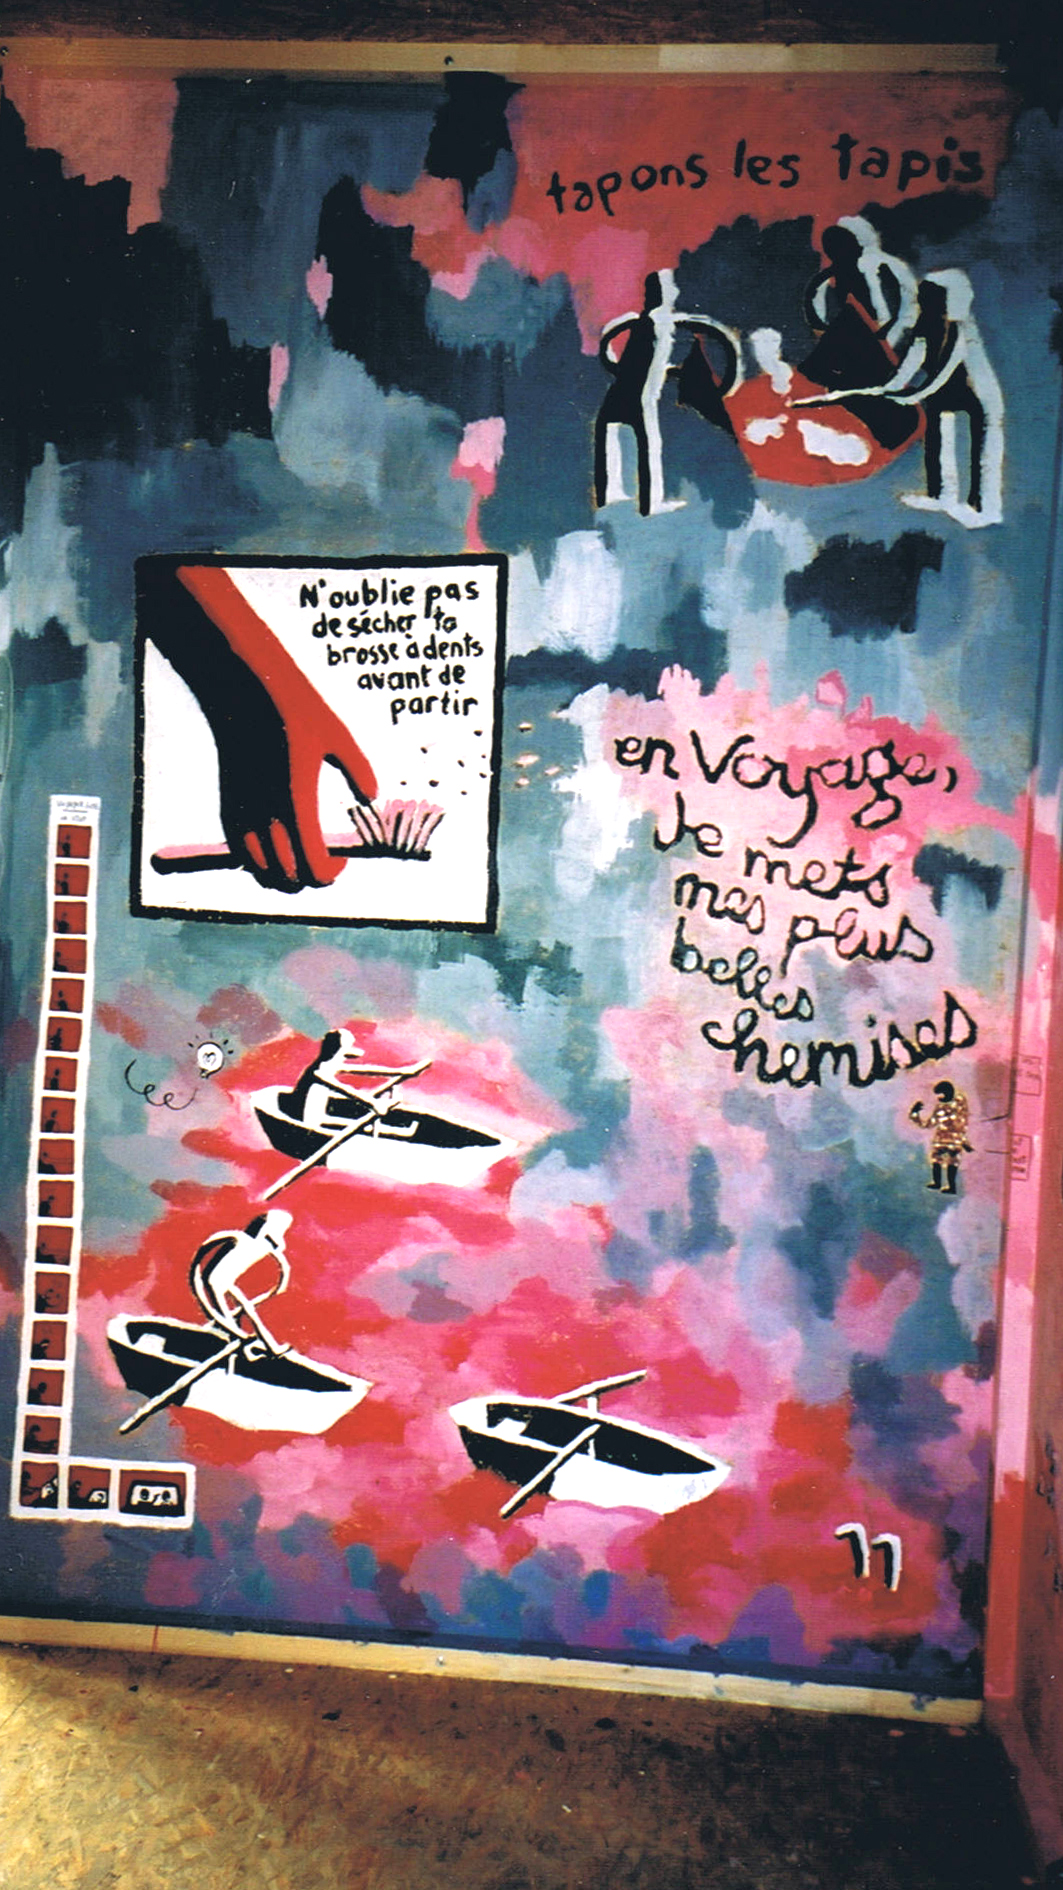 tapons les tapis
N'oublie pas
de sécher ta
brosse à dents
avant de
partir
en Voyage,
Je mets
mes plus
belles
chemises